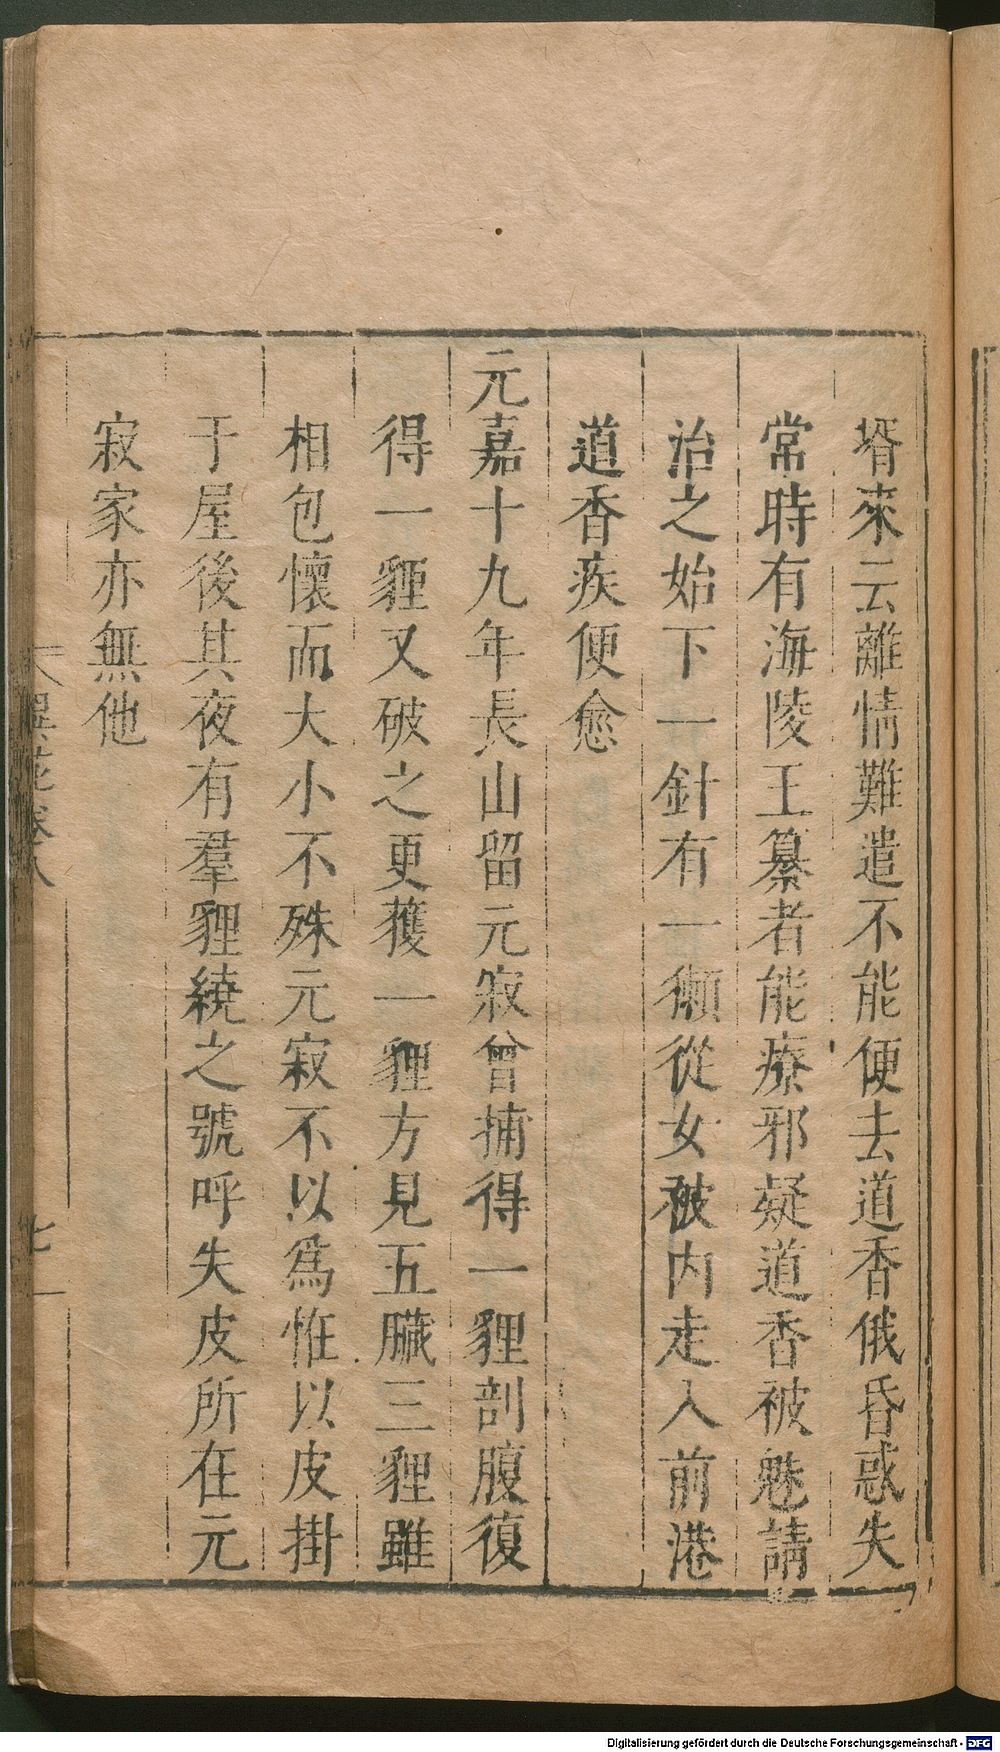 壻來云離情難遣不能便去道香俄昏惑失
常時有海陵王纂者能療邪疑道香被魅請
治之始下一針有一獺從女被内走入前港
道香疾便愈
元嘉十九年長山留元寂曾捕得一貍剖腹復
得一貍又破之更獲一貍方見五臟三貍雖
相包懷而大小不殊元寂不以爲恠以皮掛
于屋後其夜有羣貍繞之號呼失皮所在元
寂家亦無他
異苑卷八
七
Digitalisierung gefördert durch die Deutsche Forschungsgemeinschaft - DFG